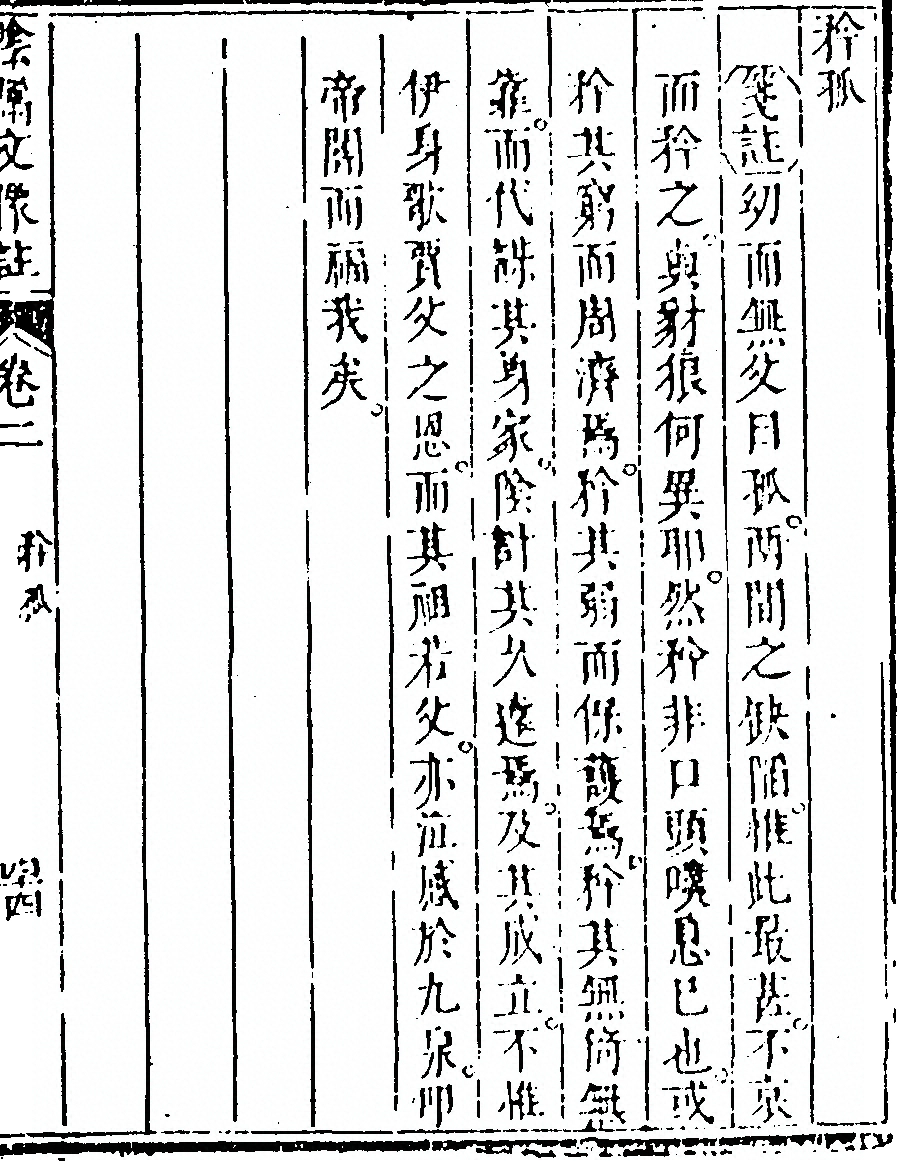 矜孤
箋註幼而無父曰孤。兩間之缺陷。惟此最甚。不哀
而矜之。與豺狼何異耶。然矜非口頭嘆息已也。或
矜其窮而周濟焉。矜其弱而保護焉。矜其無倚無
靠。而代謀其身家。陰計其久遠焉。及其成立。不惟
伊身歌賢父之恩。而其祖若父。亦泣感於九泉。叩
帝閽而福我矣。
陰騭文像註 卷二 矜孤 四